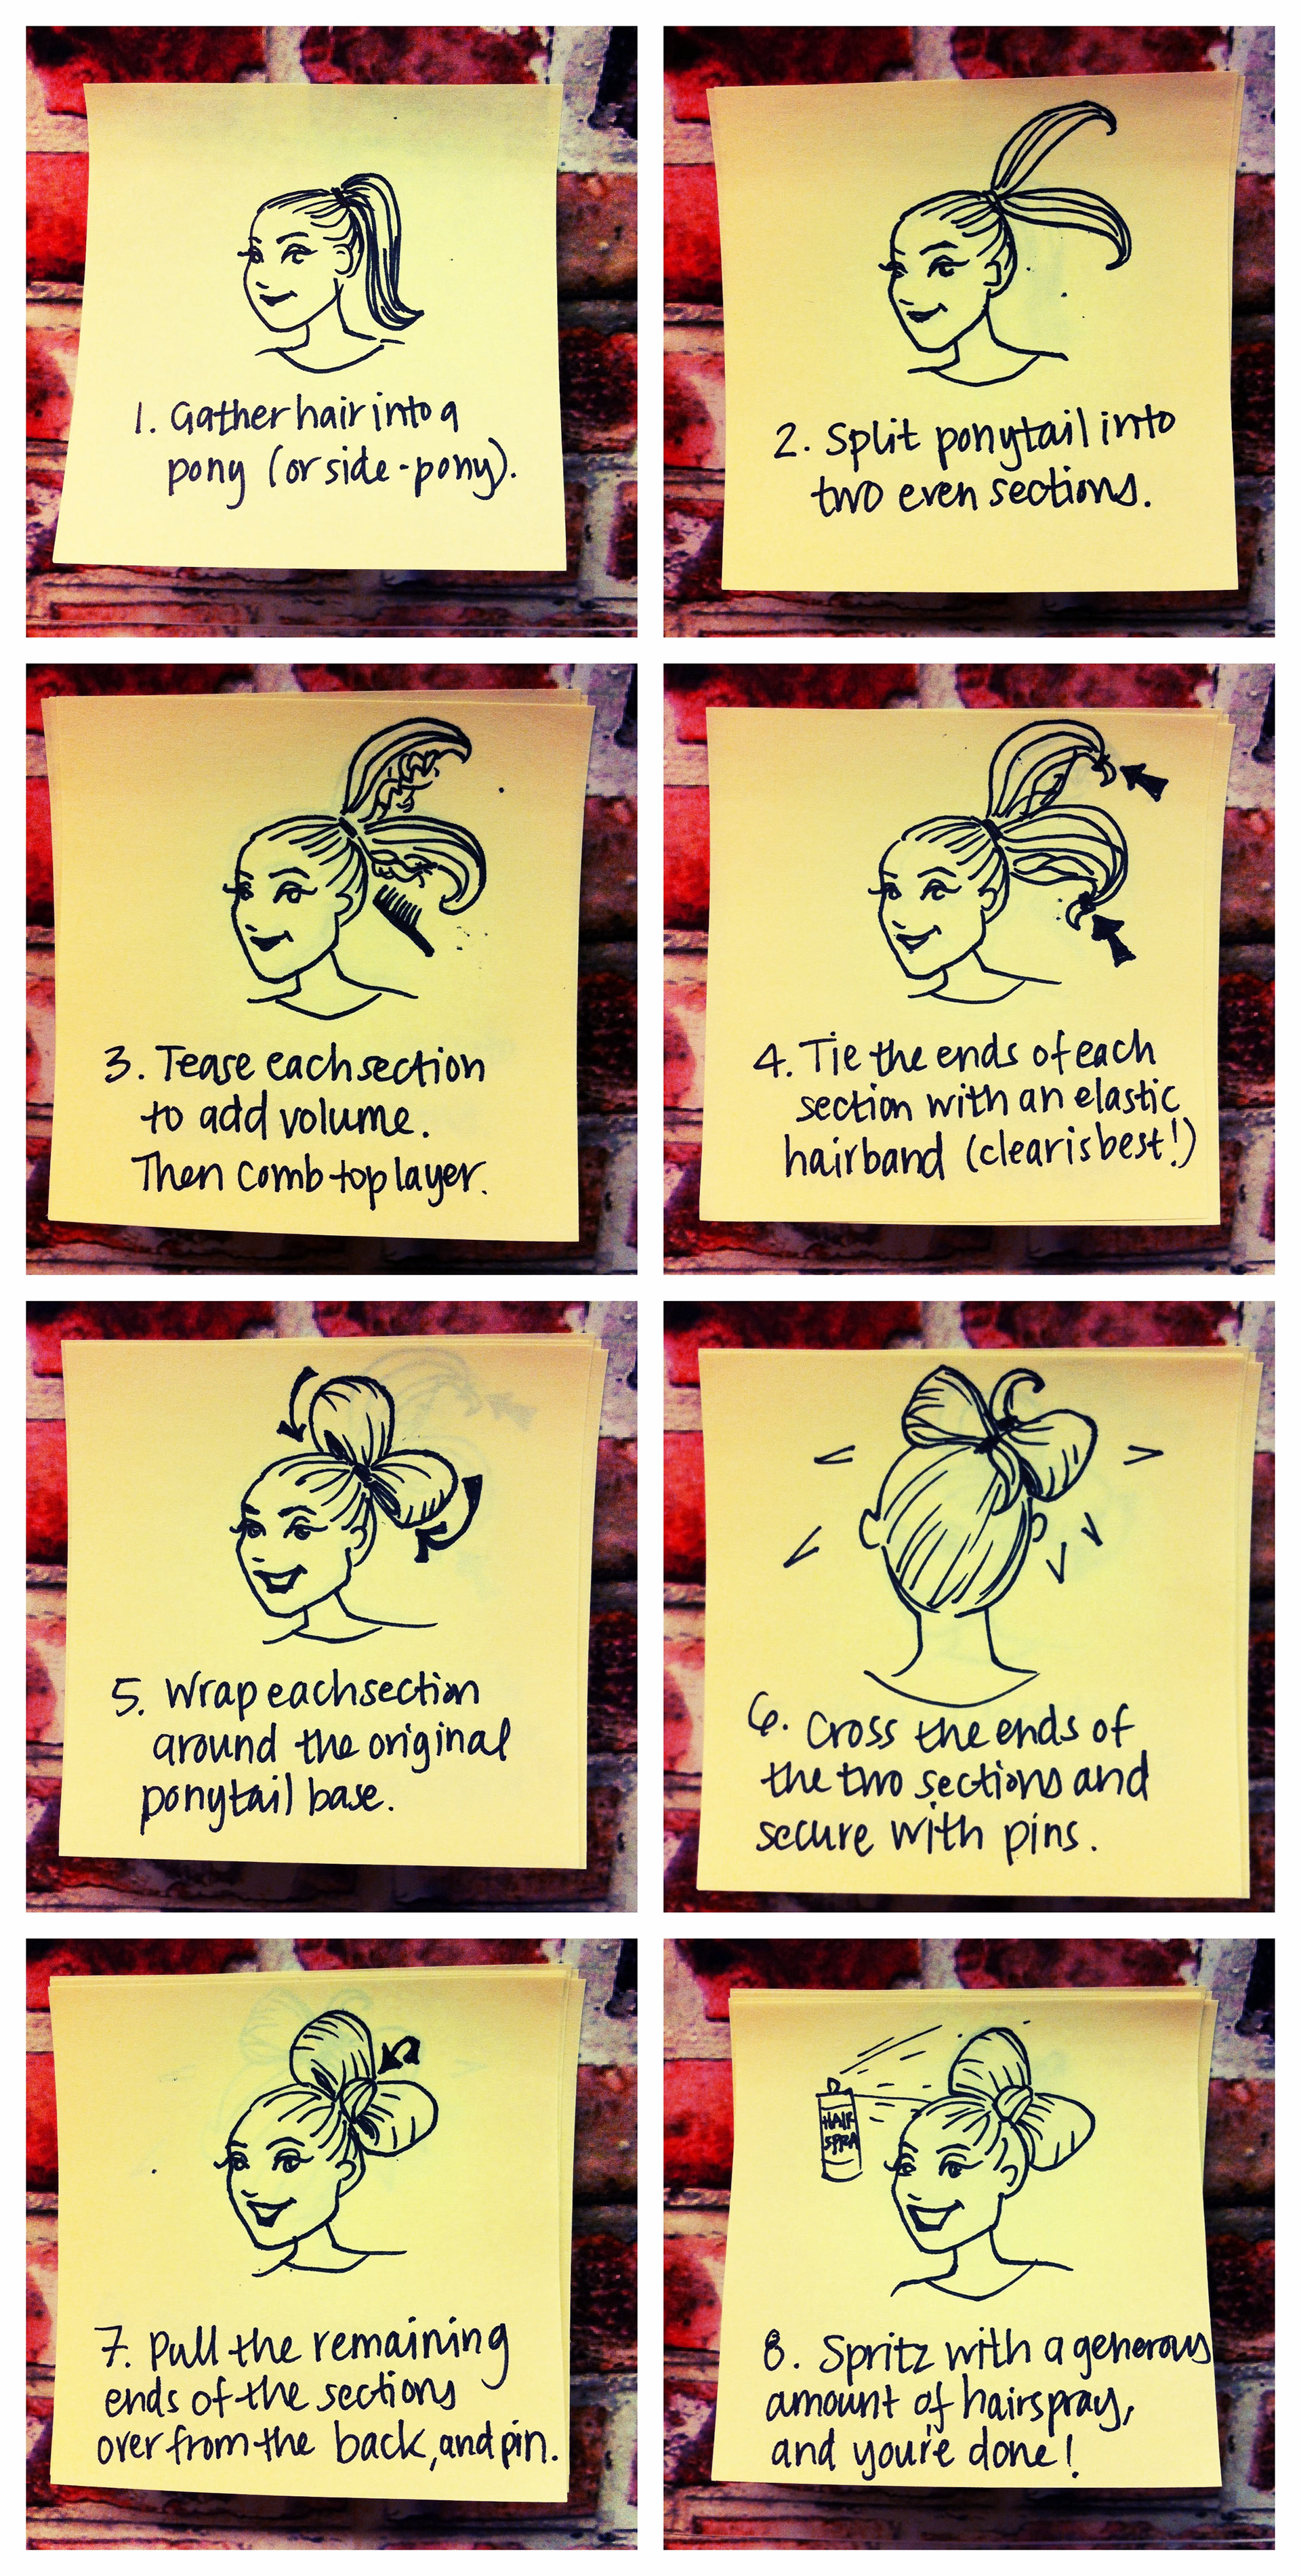 1. Gather hair into a
pony (or side-pony).
2. Split ponytail into
two even sections.
3. Tease each section
to add volume.
Then comb top layer.
4. Tie the ends of each
section with an elastic
hairband (clear is best!)
5. Wrap each section
around the original
ponytail base.
6. Cross the ends of
the two sections and
secure with pins.
7. Pull the remaining
ends of the sections
over from the back, and pin.
HAIR
SPRA
8. Spritz with a generous
amount of hairspray,
and you're done!